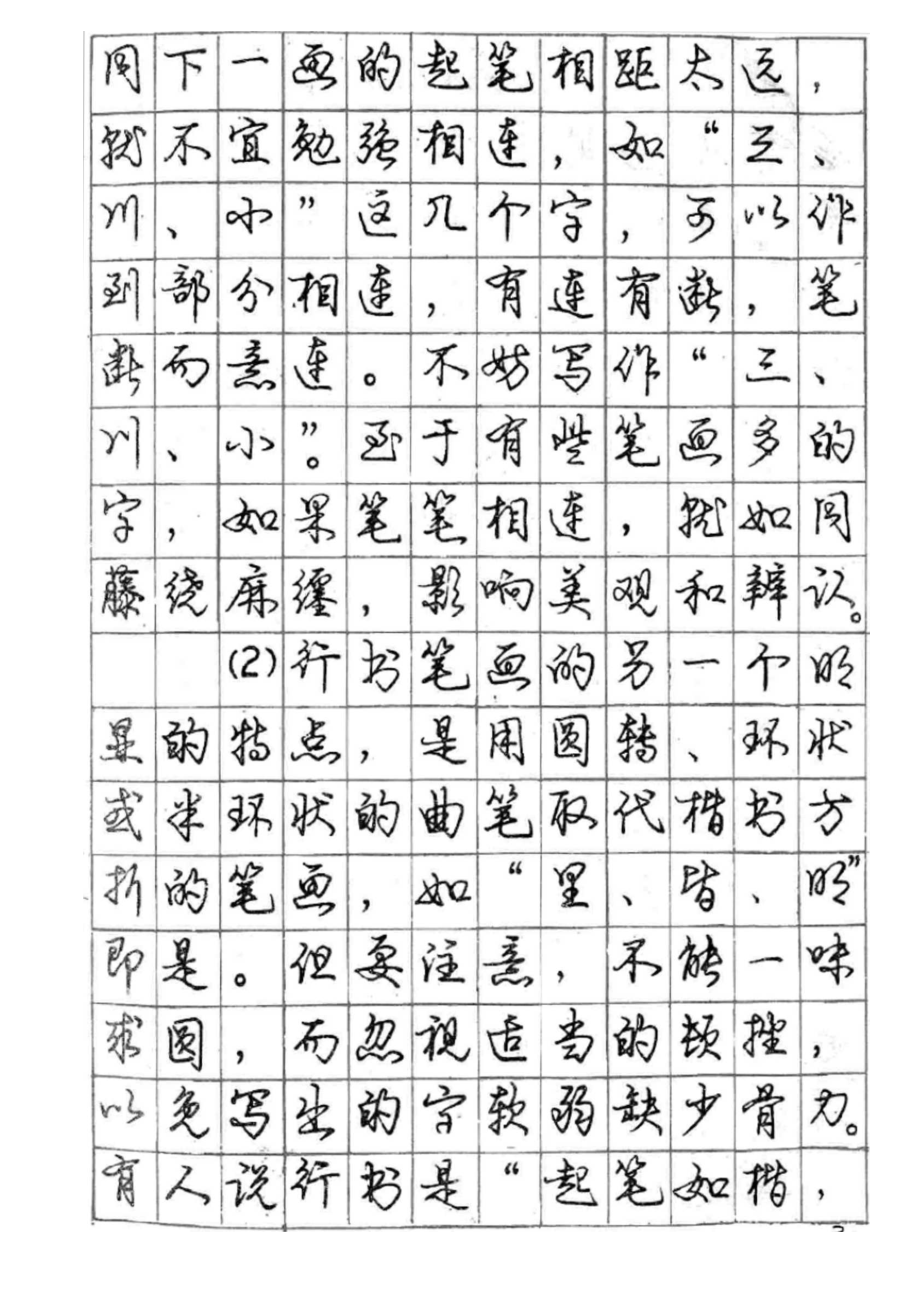 同下一画的起笔相距太远，
就不宜勉强相连，如“三、
川、小”这几个字，可以作
到部分相连，有连有断，笔
断而意连。不妨写作“三、
川、小”。至于有些笔画多的
字，如果笔笔相连，就如同
藤绕麻缠，影响美观和辨认。
(2)行书笔画的另一个明
显的特点，是用圆转、环状
或半环状的曲笔取代楷书方
折的笔画，如“里、皆、明”
即是。但要注意，不能一味
求圆，而忽视适当的顿挫，
以免写出的字软弱缺少骨力。
有人说行书是“起笔如楷，